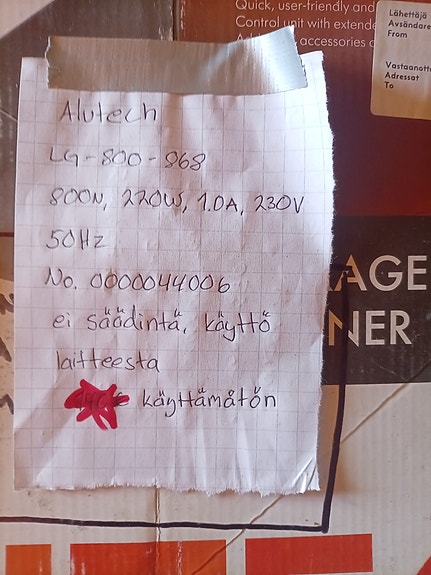 Quick, user-friendly and
Control unit with extende
accessories
Lähettäjä
Avsändare
From
Vastaanotta
Adressat
To
Alutech
LG-800-868
800N, 220W, 1.0A, 230V
50Hz
No. 0000044006
ei säädintä, käyttö
laitteesta
käyttämätön
AGE
NER